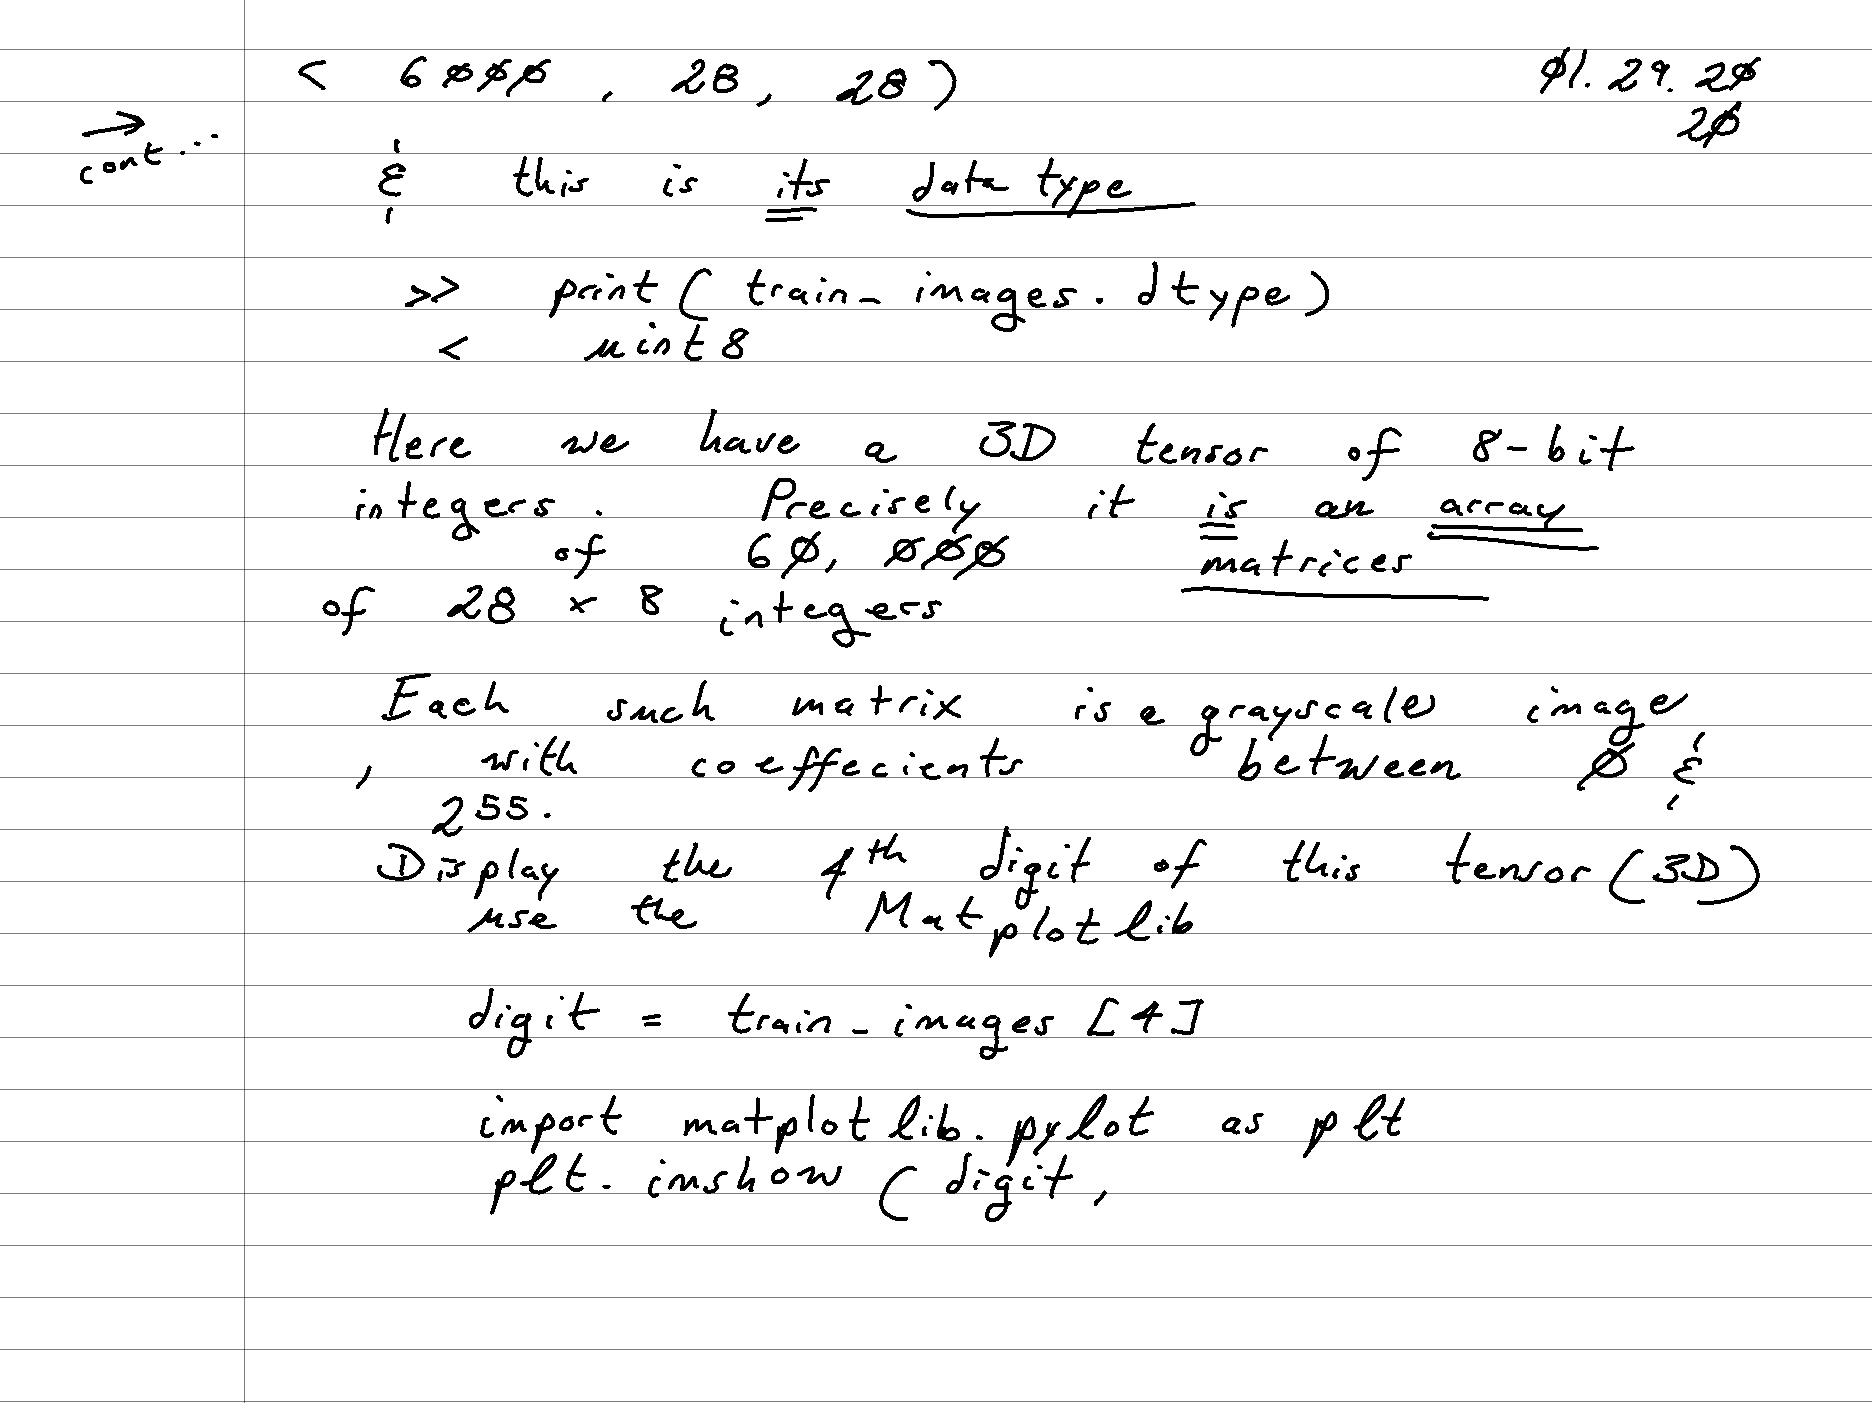 < 6ØØØ , 28, 28)
Ø1. 29. 2Ø
2Ø
→
cont...
& this is its data type
>> print( train_images. dtype)
< uint 8
Here we have a 3D tensor of 8-bit
integers. Precisely it is an array
of 6Ø, ØØØ matrices
of 28 x 8 integers
Each such matrix is a grayscale image
, with coeffecients between Ø &
255.
Display the 4th digit of this tensor (3D)
use the Matplotlib
digit = train_images [4]
import matplotlib. pylot as plt
plt. imshow ( digit,